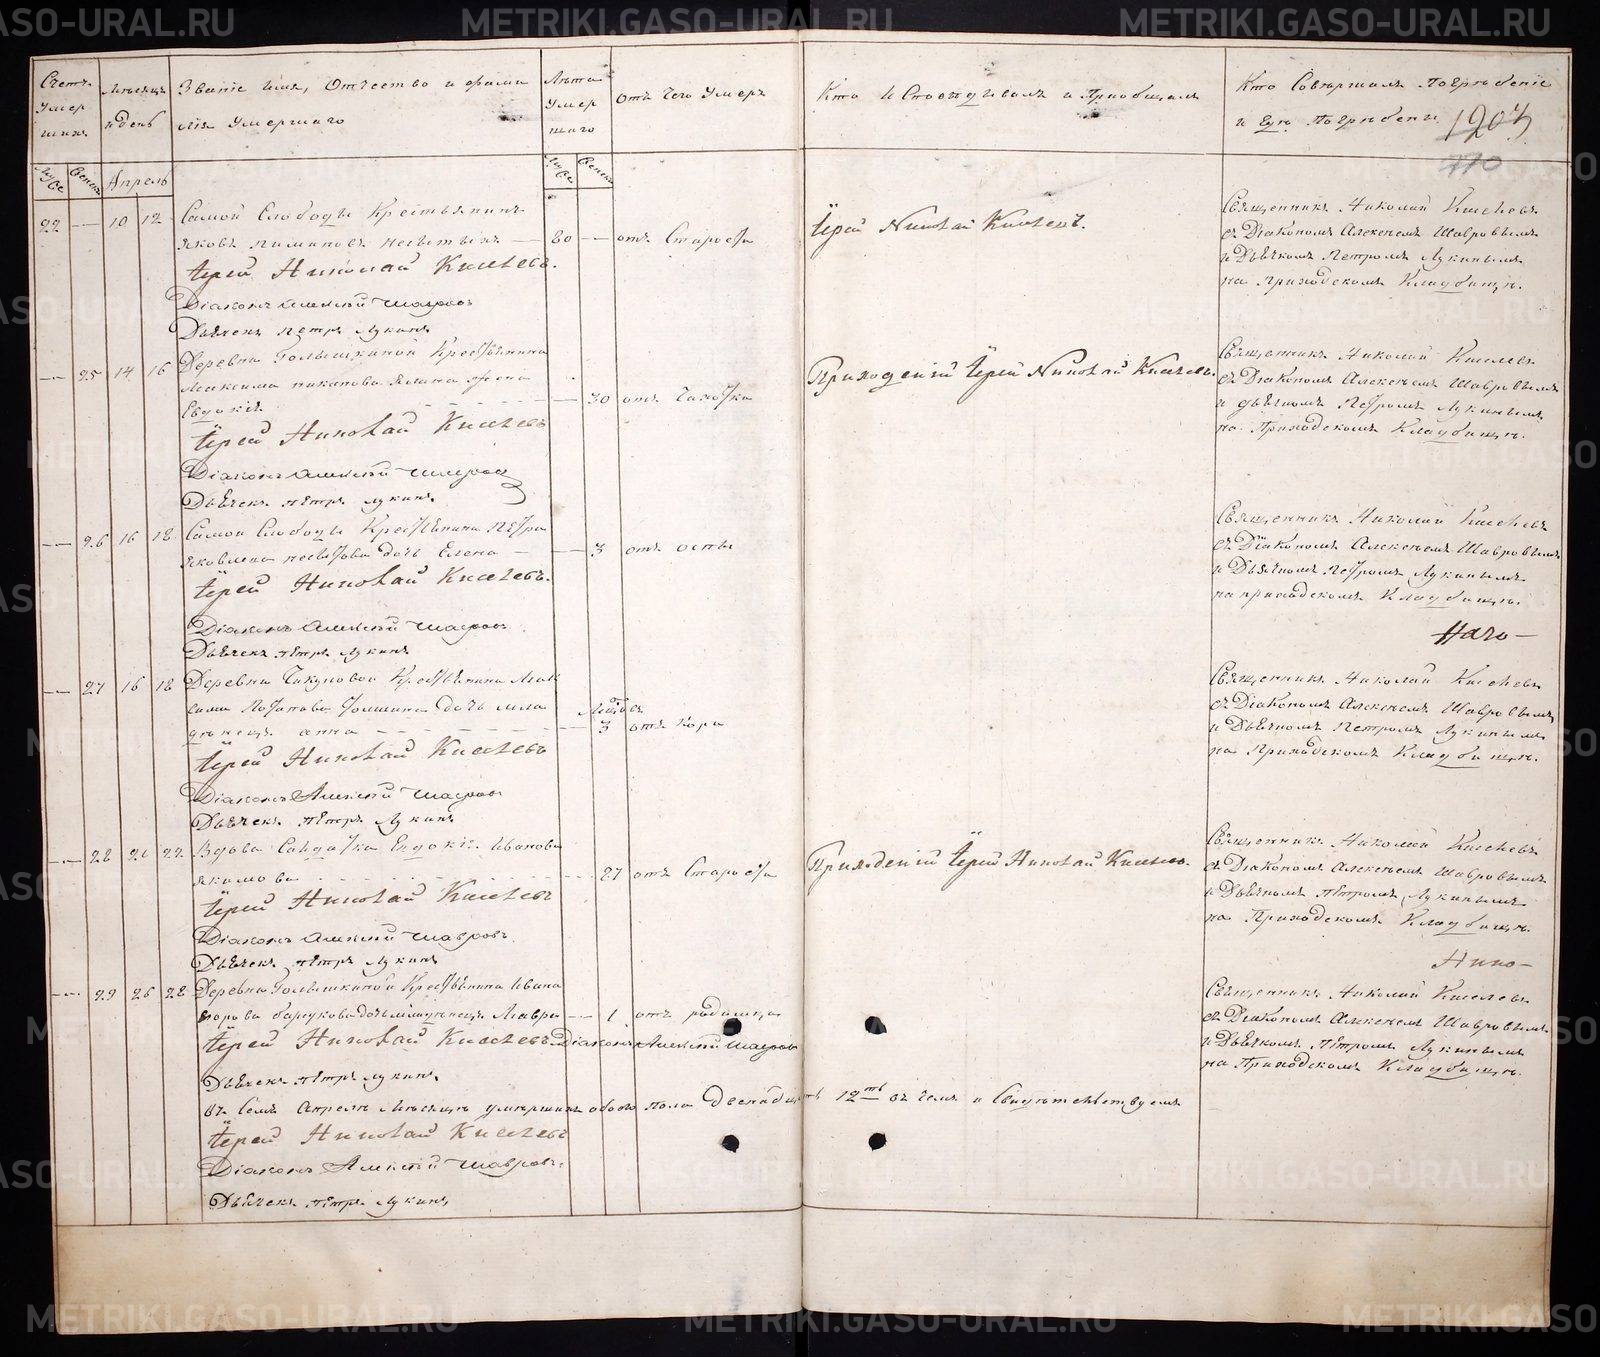 METRIKI.GASO-URAL.RU
Счетъ умер шихъ
Мѣсяцъ и день
Званіе имя, Отчество и фами
лія умершаго
Лѣта умер шаго
Отъ чего умеръ
Кто Исповѣдывалъ и Пріобщалъ
Кто Совершалъ Погребеніе
и Гдѣ Погребены
1904
770
Апрель
22 — 10 12 Самой Слободы Крестьянинъ
Яковъ — 80 — отъ Старости
Іерей Николай Киселевъ.
Діаконъ Алексѣй Шавровъ
Дьячекъ Петръ Лукинъ
Іерей Николай Киселевъ.
Священникъ Николай Киселевъ
съ Діакономъ Алексѣемъ Шавровымъ
и Дьячкомъ Петромъ Лукинымъ
на Приходскомъ Кладбищѣ.
— 25 14 16 Деревни Голышкиной Крестьянина
Максима жена
Евдокія — 30 отъ Чахотки
Іерей Николай Киселевъ
Діаконъ Алексѣй Шавровъ
Дьячекъ Петръ Лукинъ.
Приходскій Іерей Николай Киселевъ.
Священникъ Николай Киселевъ
съ Діакономъ Алексѣемъ Шавровымъ
и дьячкомъ Петромъ Лукинымъ
на Приходскомъ Кладбищѣ.
— 26 16 18 Самой Слободы Крестьянина Петра
Яковлева дочь Елена — 3 отъ оспы
Іерей Николай Киселевъ.
Діаконъ Алексѣй Шавровъ
Дьячекъ Петръ Лукинъ
Священникъ Николай Киселевъ
съ Діакономъ Алексѣемъ Шавровымъ
и Дьячкомъ Петромъ Лукинымъ
на приходскомъ Кладбищѣ.
— 27 16 18 Деревни Чикуновой Крестьянина Мак
сима дочь мла
денецъ Анна — 3 отъ Кори
Іерей Николай Киселевъ
Діаконъ Алексѣй Шавровъ
Дьячекъ Петръ Лукинъ
Священникъ Николай Киселевъ
съ Діакономъ Алексѣемъ Шавровымъ
и Дьячкомъ Петромъ Лукинымъ
на Приходскомъ Кладбищѣ.
— 28 22 Вдова Солдатка Евдокія Иванова
Якимова 27 отъ Старости
Іерей Николай Киселевъ
Діаконъ Алексѣй Шавровъ
Дьячекъ Петръ Лукинъ
Приходскій Іерей Николай Киселевъ.
Священникъ Николай Киселевъ
съ Діакономъ Алексѣемъ Шавровымъ
и Дьячкомъ Петромъ Лукинымъ
на Приходскомъ Кладбищѣ.
— 29 26 28 Деревни Голышкиной Крестьянина Ивана
дочь младенецъ Мавра — 1 отъ родимца
Іерей Николай Киселевъ. Діаконъ Алексѣй Шавровъ
Дьячекъ Петръ Лукинъ.
Священникъ Николай Киселевъ
съ Діакономъ Алексѣемъ Шавровымъ
и Дьячкомъ Петромъ Лукинымъ
на Приходскомъ Кладбищѣ.
Въ семъ Апрелѣ мѣсяцѣ умершихъ обоего пола двенадцать 12ть въ чемъ и Свидѣтельствуемъ
Іерей Николай Киселевъ
Діаконъ Алексѣй Шавровъ.
Дьячекъ Петръ Лукинъ